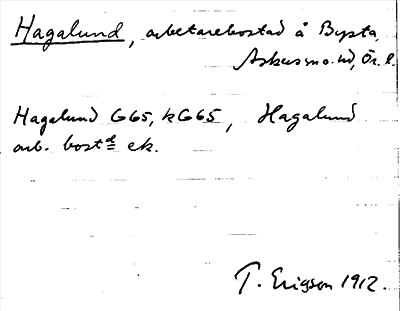 Hagalund, arbetarebostad å Bysta,
Askers sn. o. hd, Ör. l.
Hagalund G65, kG65, Hagalund
arb. bostd ek.
T. Ericson 1912.